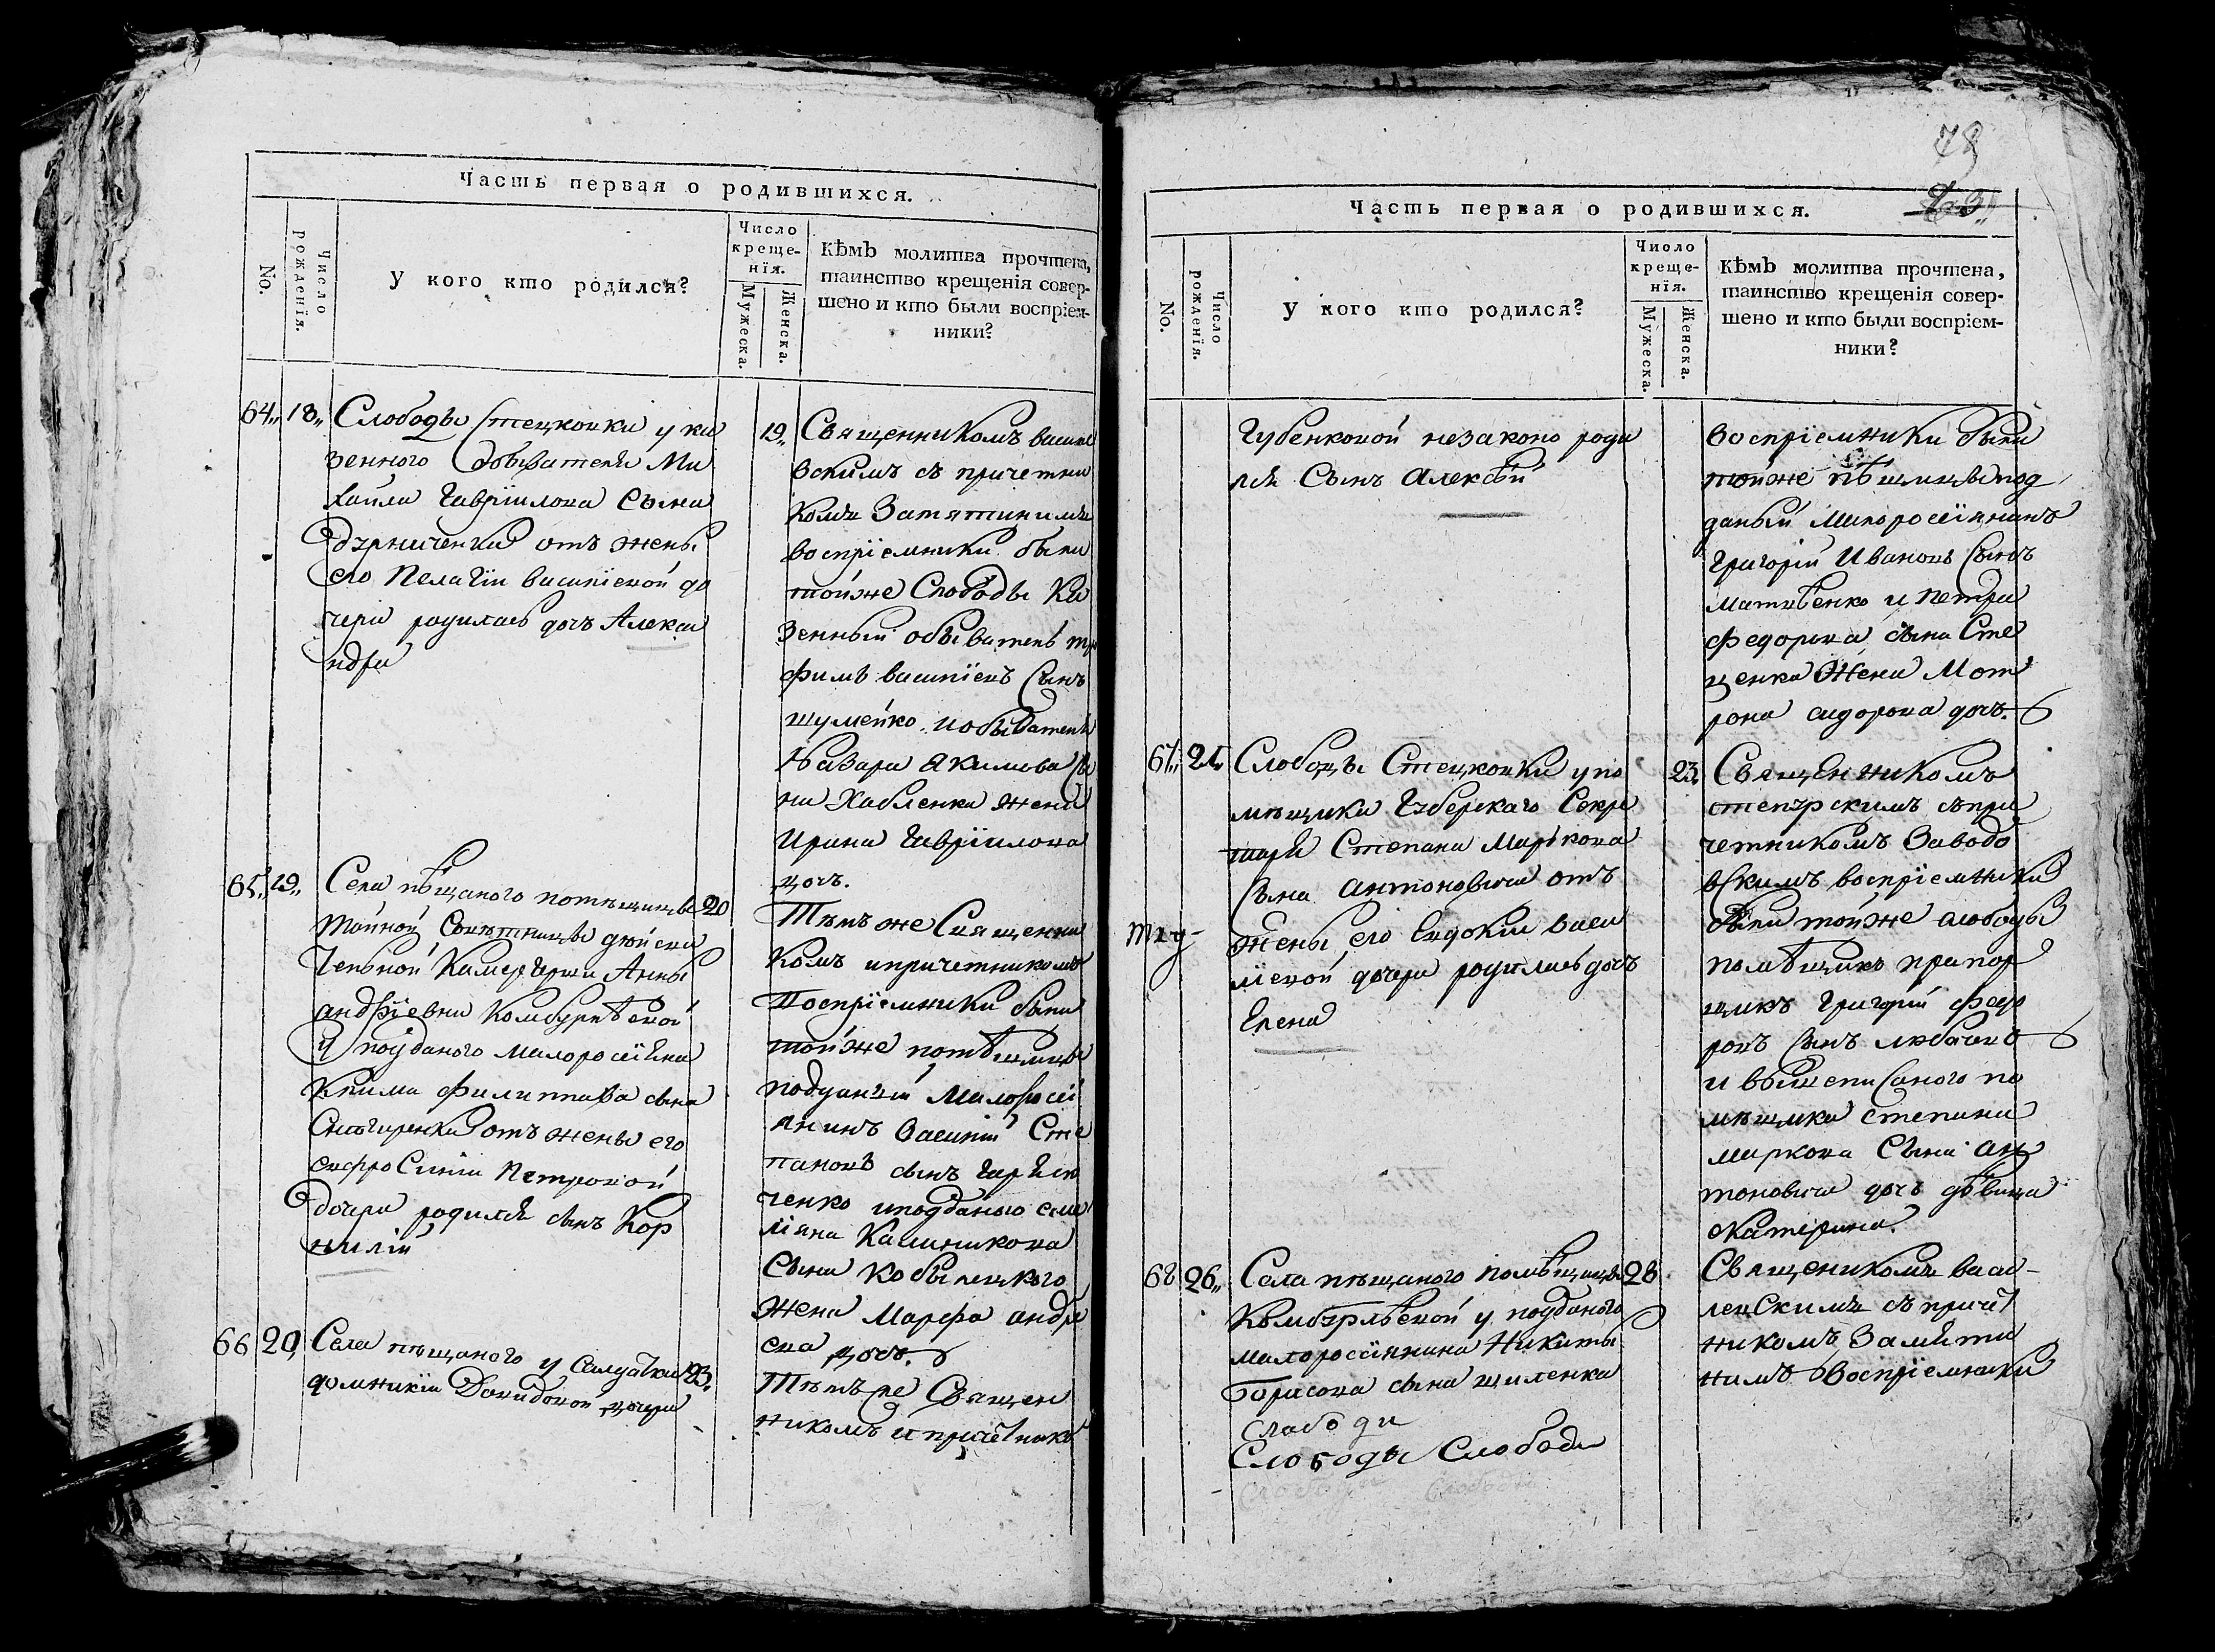 Часть первая о родившихся.
No.
Число рожденїя.
У кого кто родился?
Число
креще-
нїя.
Мужеска.
Женска.
Кѣмъ молитва прочтена,
таинство крещенїя совер-
шено и кто были воспрїем-
ники?
64,, 18,,
Слободы Стецковки у ка
зенного обывателя Ми
хайла Гаврїилова сына
от жены
его Пелагїи василїевой до
чери родилась дочь Алекса
ндра
19,,
Священникомъ василе
вскимъ съ причетни
комъ Замятинимъ
воспрїемники были
тойже Слободы Ка
зенный обыватель тро
фимъ василїевъ Сынъ
шумейко и обывателя
Назара Якимова Сы
на Хавленка жена
Ирина Гаврїилова
дочь.
65,, 19,,
Села пѣщаного помѣщицы
Тайной Совѣтницы дѣйстви
Тельной Камергерши Анны
андрїевны Комбурлѣевой
У подданого малоросїяна
Клима Филиппова сына
Снѣгиренка отъ жены его
евфросинїи Петровой
дочери родился сынъ Кор
нилїй
20
Тѣмъ же Священни
комъ и причетникомъ
Воспрїемники были
тойже помѣщицы
подданый Малоросї
янинъ Василїй Сте
пановъ сынъ
ченко и подданого еме
лїяна Калиникова
Сына Кобылецкого
жена Марфа андре
ева дочь.
66 20,
Села пѣщаного у Салдатки
домникїи Давидовой дочери
23.
Тѣмъ же Священ
никомъ и причетнико
78
Часть первая о родившихся.
No.
Число рожденїя.
У кого кто родился?
Число
креще-
нїя.
Мужеска.
Женска.
Кѣмъ молитва прочтена,
таинство крещенїя совер-
шено и кто были воспрїем-
ники?
Губенковой незаконо роди
лся Сынъ Алексѣй
воспрїемники были
тойже помѣщицы под
даный Малоросїянинъ
Григорїй Ивановъ Сынъ
Матвѣенко и Петра
Федорова сына Сте
ценка Жена Мот
рона сидорова дочь.
67,, 21,,
Слободы Стецковки у по
мѣщика Губерскаго Секре
таря Степана Маркова
Сына Антоновича отъ
Жены его Евдокїи васи
лїевой дочери родилась дочь
Елена
23,
Священникомъ
степурскимъ съ при
четникомъ Заводо
вскимъ воспрїемники
были тойже слободы
помѣщикъ прапор
щикъ Григорїй Федо
ровъ Сынъ
и вышеписаного по
мѣщика степана
маркова Сына Ан
тоновича дочь дѣвица
екатерина.
68 26,,
Села пѣщаного помѣщицы
Комбурлѣевой у подданого
малоросїянина Никиты
Борисова сына шиленка
28
Священикомъ васи-
левскимъ съ причет
никомъ Замяти
нимъ воспрїемники
Слободи
Слободы Слободы